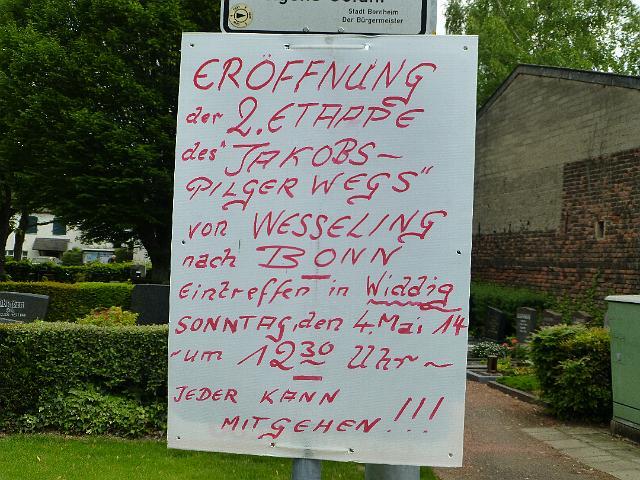 Stadt Bornheim
Der Bürgermeister
ERÖFFNUNG
der 2. ETAPPE
des "JAKOBS-
PILGERWEGS"
von WESSELING
nach BONN
Eintreffen in Widdig
SONNTAG, den 4. Mai 14
-um 12 30 Uhr-
JEDER KANN
MITGEHEN!!!